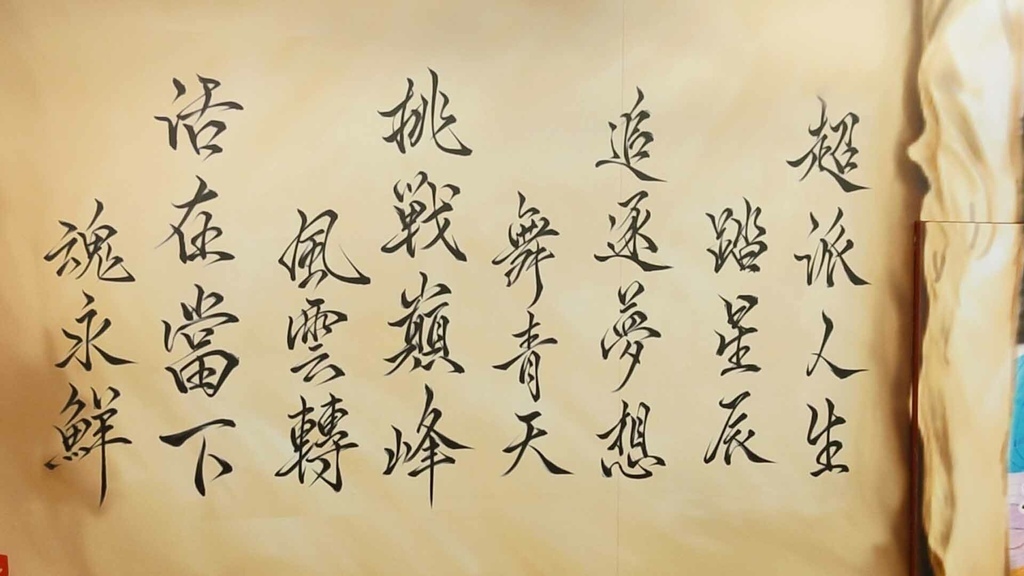 超派人生
踏星辰
追逐夢想
舞青天
挑戰巔峰
風雲轉
活在當下
魂永鮮